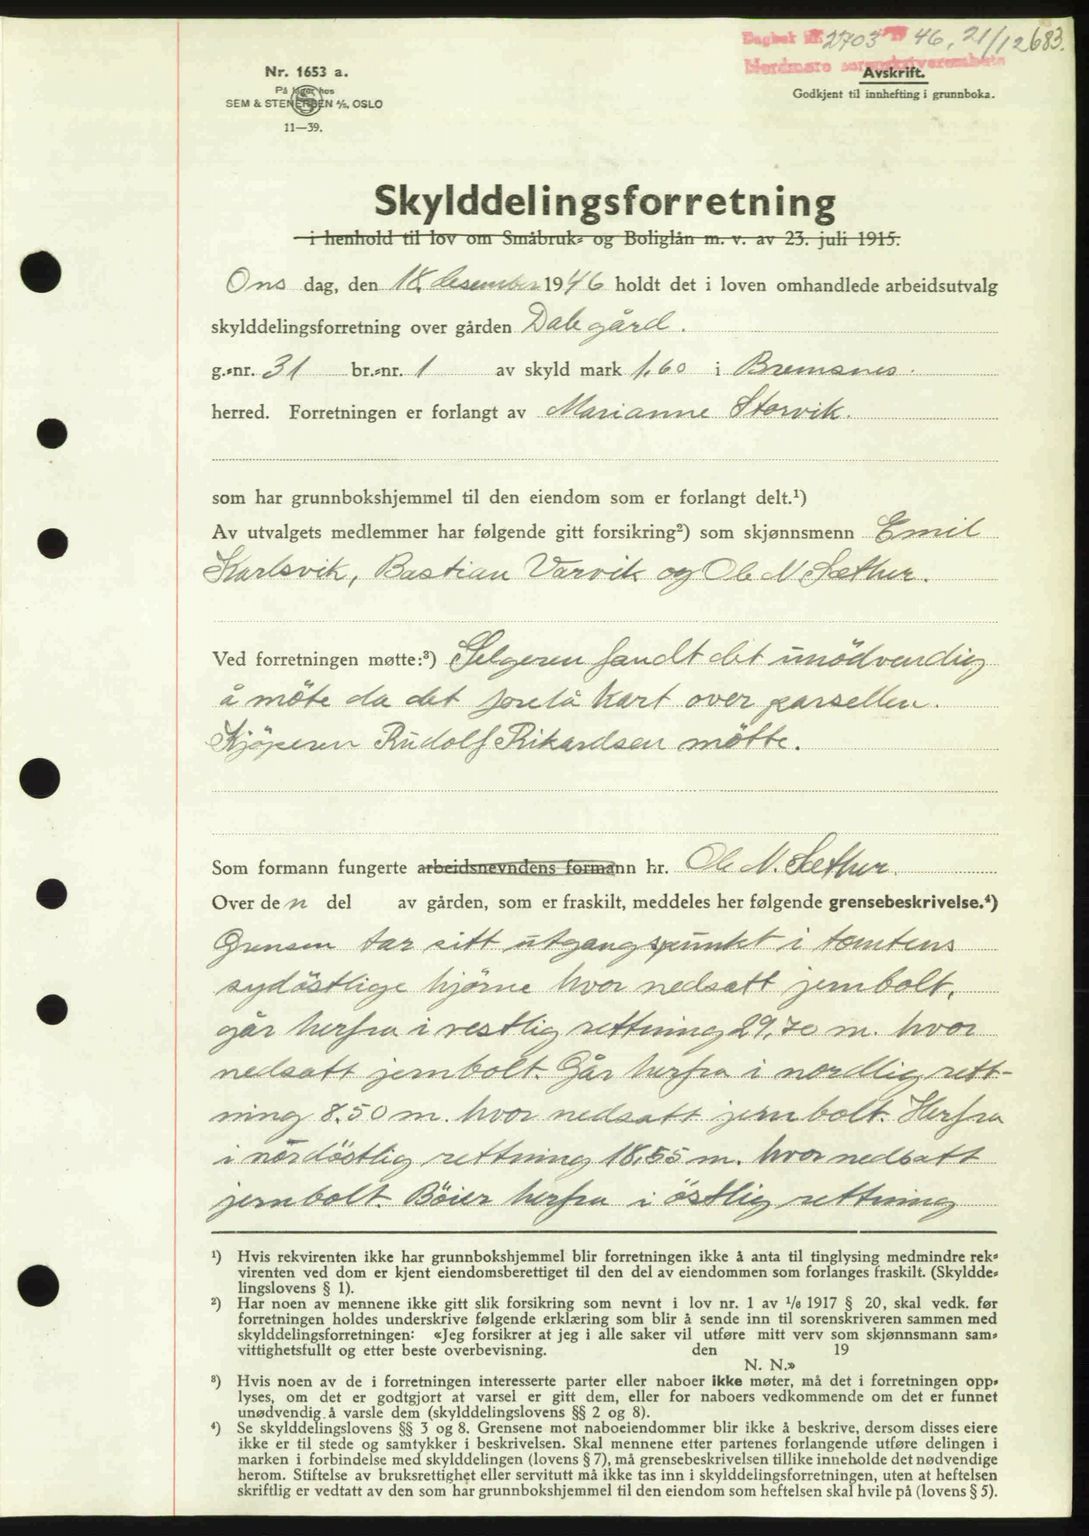 Dagbok nr. 2703 19 46, 21/12 683.
Nordmøre sorenskriverembete
Nr. 1653 a.
På lager hos
SEM & STENERSEN A/S, OSLO
11—39.
Avskrift.
Godkjent til innhefting i grunnboka.
Skylddelingsforretning
i henhold til lov om Småbruk- og Boliglån m. v. av 23. juli 1915.
Ons dag, den 18. desember 1946 holdt det i loven omhandlede arbeidsutvalg
skylddelingsforretning over gården Dale gård.
g.-nr. 31 br.-nr. 1 av skyld mark 1,60 i Bremsnes.
herred. Forretningen er forlangt av Marianne Storvik.
som har grunnbokshjemmel til den eiendom som er forlangt delt.¹)
Av utvalgets medlemmer har følgende gitt forsikring²) som skjønnsmenn Emil
Karlsvik, Bastian Varvik og Ole N. Sæther.
Ved forretningen møtte:³) Selgeren fandt det unödvendig
å möte da det forelå kart over parsellen.
Kjöperen Rudolf Rikardsen mötte.
Som formann fungerte arbeidsnevndens formann hr. Ole N. Sæther.
Over den del av gården, som er fraskilt, meddeles her følgende grensebeskrivelse.⁴)
Grensen tar sitt utgangspunkt i tomtens
sydöstlige hjörne hvor nedsatt jernbolt,
går herfra i vestlig rettning 29,70 m. hvor
nedsatt jernbolt. Går herfra i nordlig rett-
ning 8,50 m. hvor nedsatt jernbolt. Herfra
i nordöstlig rettning 18,55 m. hvor nedsatt
jernbolt. Böier herfra i östlig rettning
¹) Hvis rekvirenten ikke har grunnbokshjemmel blir forretningen ikke å anta til tinglysing medmindre rek-
virenten ved dom er kjent eiendomsberettiget til den del av eiendommen som forlanges fraskilt. (Skyldde-
lingslovens § 1).
²) Har noen av mennene ikke gitt slik forsikring som nevnt i lov nr. 1 av 1/6 1917 § 20, skal vedk. før
forretningen holdes underskrive følgende erklæring som blir å sende inn til sorenskriveren sammen med
skylddelingsforretningen: «Jeg forsikrer at jeg i alle saker vil utføre mitt verv som skjønnsmann sam-
vittighetsfullt og etter beste overbevisning. den 19
N. N.»
³) Hvis noen av de i forretningen interesserte parter eller naboer ikke møter, må det i forretningen opp-
lyses, om det er godtgjort at varsel er gitt dem, eller for naboers vedkommende om det er funnet
unødvendig å varsle dem (skylddelingslovens §§ 2 og 8).
⁴) Se skylddelingslovens §§ 3 og 8. Grensene mot naboeiendommer blir ikke å beskrive, dersom disses eiere
ikke er til stede og samtykker i beskrivelsen. Skal mennene etter partenes forlangende utføre delingen i
marken i forbindelse med skylddelingen (lovens § 7), må grensebeskrivelsen tillike inneholde det nødvendige
herom. Stiftelse av bruksrettighet eller servitutt må ikke tas inn i skylddelingsforretningen, uten at heftelsen
skriftlig er vedtatt av den som har grunnbokshjemmel til den eiendom som heftelsen skal hvile på (lovens § 5).